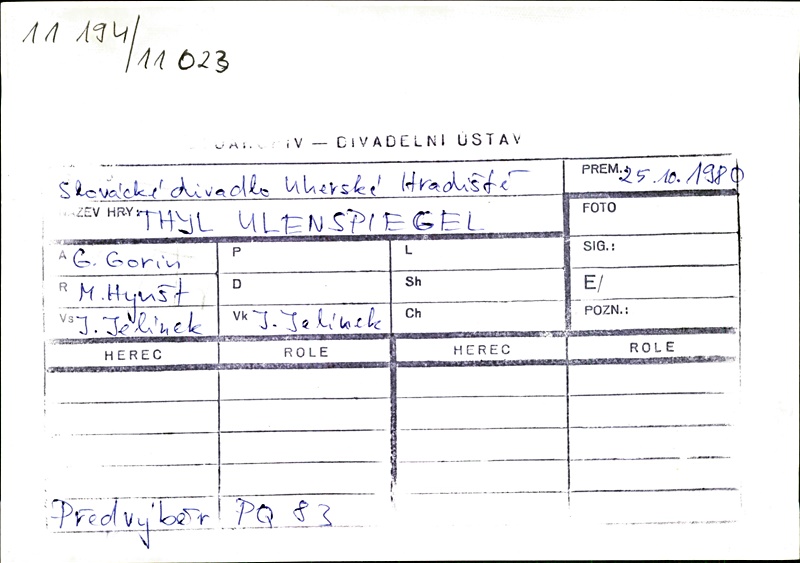 11 194/
11 023
— DIVADELNÍ ÚSTAV
Slovácké divadlo Uherské Hradiště PREM.: 25.10.1980
NÁZEV HRY: THYL ULENSPIEGEL FOTO
A G. Gorin P L SIG.:
R M. Hynšt D Sh E/
Vs J. Jelínek Vk J. Jelínek Ch POZN.:
HEREC ROLE HEREC ROLE
Předvýběr PQ 83